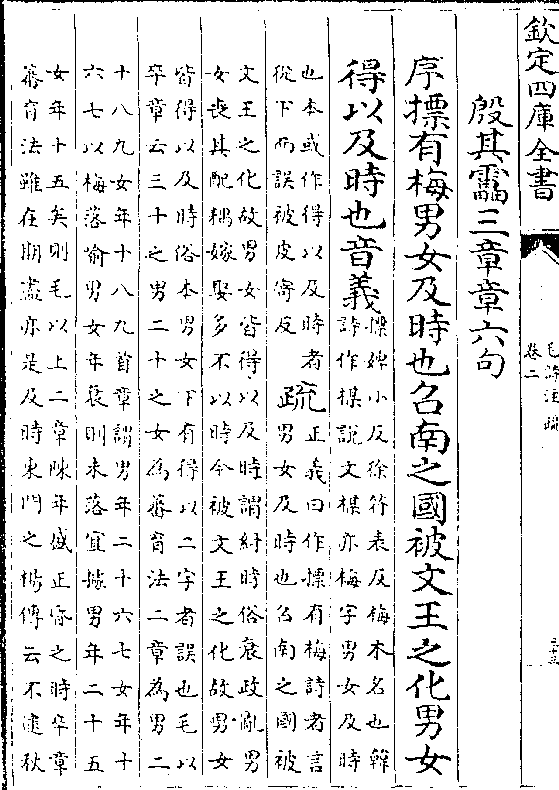 欽定四庫全書
毛詩注疏
卷二
三十三
殷其靁三章章六句
序摽有梅男女及時也召南之國被文王之化男女
得以及時也音義
摽婢小反徐符表反梅木名也韓
詩作楳說文楳亦梅字男女及時
也本或作得以及時者
從下而誤被皮寄反
疏
正義曰作摽有梅詩者言
男女及時也召南之國被
文王之化故男女皆得以及時謂紂時俗衰政亂男
女喪其配耦嫁娶多不以時今被文王之化故男女
皆得以及時俗本男女下有得以二字者誤也毛以
卒章云三十之男二十之女為蕃育法二章為男二
十八九女年十八九首章謂男年二十六七女年十
六七以梅落喻男女年衰則未落宜據男年二十五
女年十五矣則毛以上二章陳年盛正昏之時卒章
蕃育法雖在期盡亦是及時東門之楊傳云不逮秋